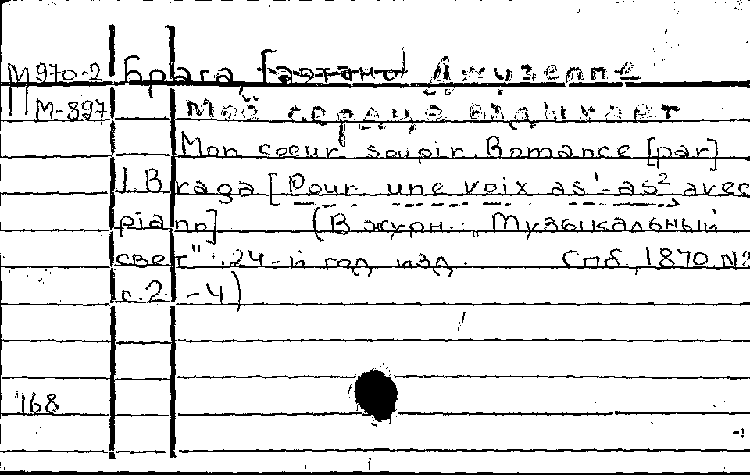 М970-2 Брага, Гаэтано Джузеппе
M-897 Моё сердце вздыхает
Mon coeur soupir. Romance [par]
J. Braga [Pour une voix as¹-as² avec
piano] (В журн. „Музыкальный
свет". 24-й год изд. Спб, 1870 №2
с. 2-4)
168